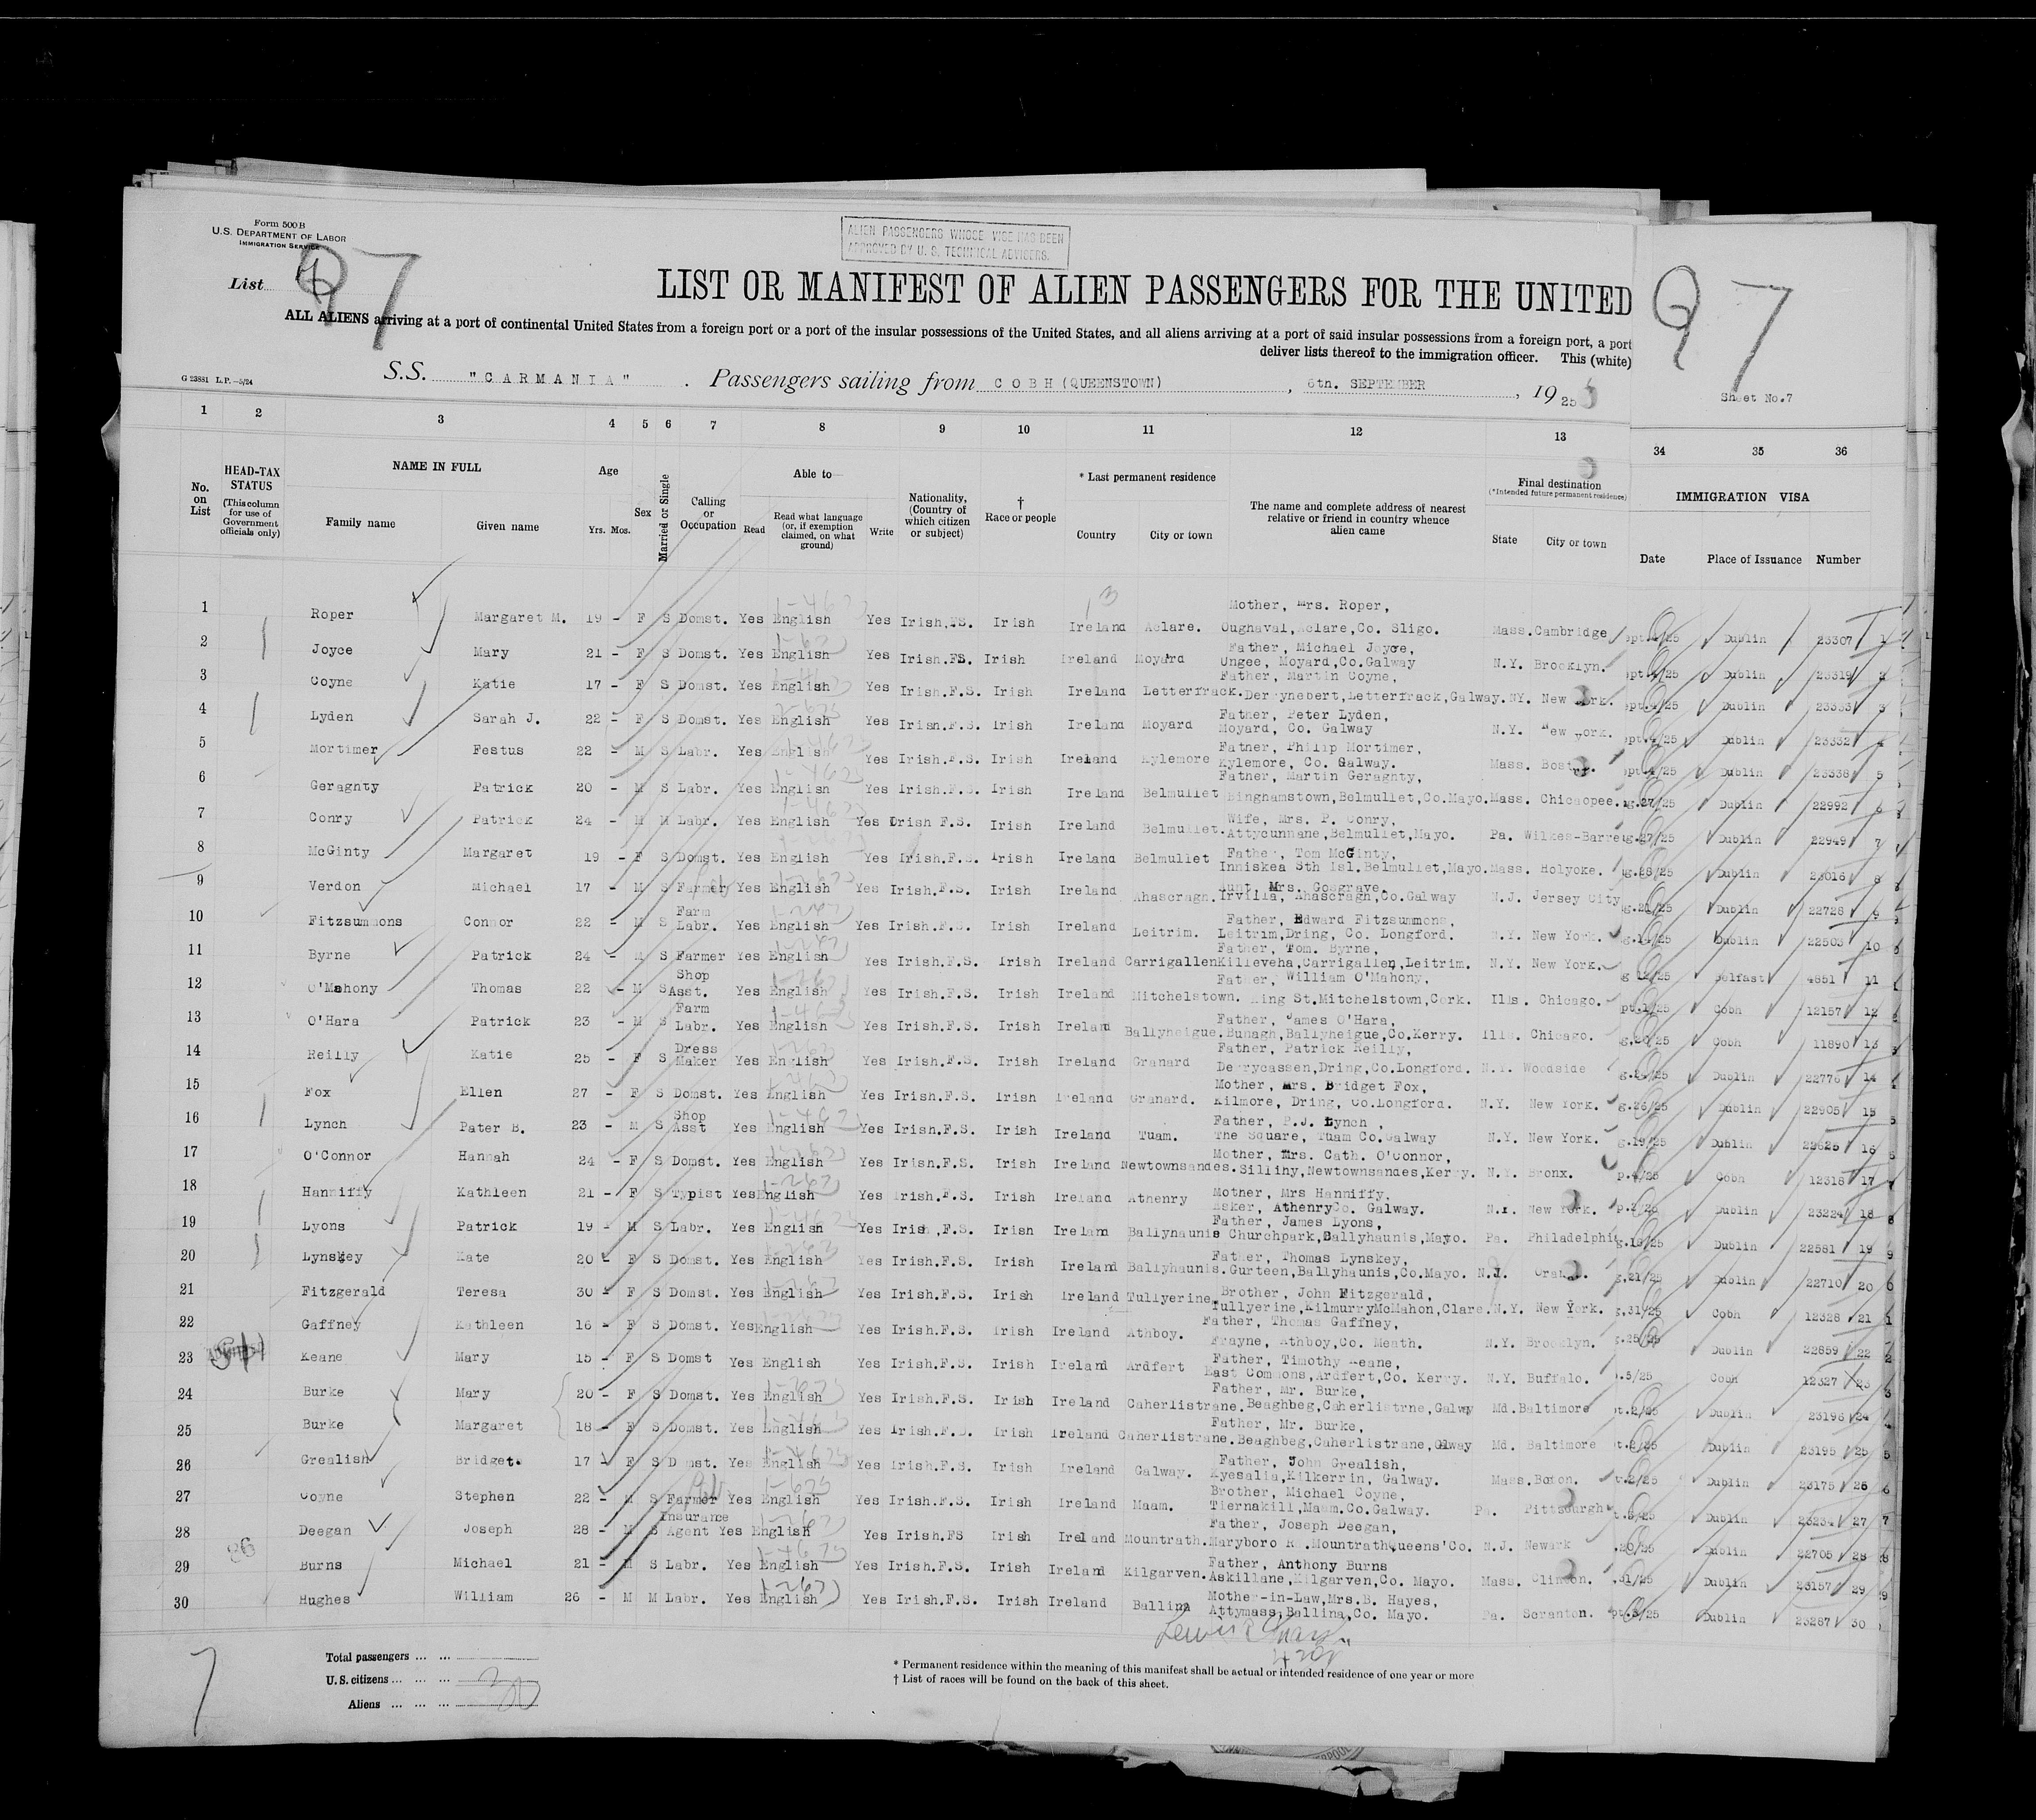 Form 500 B
U.S. DEPARTMENT OF LABOR
IMMIGRATION SERVICE
ALIEN PASSENGERS WHOSE VISE HAS BEEN
APPROVED BY U. S. TECHNICAL ADVISERS.
List 97
97
LIST OR MANIFEST OF ALIEN PASSENGERS FOR THE UNITED
ALL ALIENS arriving at a port of continental United States from a foreign port or a port of the insular possessions of the United States, and all aliens arriving at a port of said insular possessions from a foreign port, a port
deliver lists thereof to the immigration officer. This (white)
G 23881 L.P.—5/24
S.S. "CARMANIA". Passengers sailing from COBH (QUEENSTOWN), 6th. SEPTEMBER, 1925
Sheet No.7
1 2 3 4 5 6 7 8 9 10 11 12 13 34 35 36
No. on List
HEAD-TAX STATUS (This column for use of Government officials only)
NAME IN FULL
Family name Given name
Age Yrs. Mos.
Sex
Married or Single
Calling or Occupation
Able to
Read Read what language (or, if exemption claimed, on what ground) Write
Nationality, (Country of which citizen or subject)
† Race or people
* Last permanent residence
Country City or town
The name and complete address of nearest relative or friend in country whence alien came
Final destination
(*Intended future permanent residence)
State City or town
IMMIGRATION VISA
Date Place of Issuance Number
1 Roper Margaret M. 19 - F S Domst. Yes English Yes Irish,FS. Irish Ireland Aclare. Mother, Mrs. Roper, Oughaval,Aclare,Co. Sligo. Mass.Cambridge ept.4/25 Dublin 23307 1
2 Joyce Mary 21 - F S Domst. Yes English Yes Irish.FS. Irish Ireland Moyard Father, Michael Joyce, Ungee, Moyard,Co.Galway N.Y. Brooklyn. ept.4/25 Dublin 23319 2
3 Coyne Katie 17 - F S Domst. Yes English Yes Irish.F.S. Irish Ireland Letterfrack. Father, Martin Coyne, Derrynebert,Letterfrack,Galway. NY. New York. ept.4/25 Dublin 23333 3
4 Lyden Sarah J. 22 - F S Domst. Yes English Yes Irish.F.S. Irish Ireland Moyard Father, Peter Lyden, Moyard, Co. Galway N.Y. New York. ept.4/25 Dublin 23332 4
5 Mortimer Festus 22 - M S Labr. Yes English Yes Irish.F.S. Irish Ireland Kylemore Father, Philip Mortimer, Kylemore, Co. Galway. Mass. Boston. ept.4/25 Dublin 23338 5
6 Geragnty Patrick 20 - M S Labr. Yes English Yes Irish.F.S. Irish Ireland Belmullet Father, Martin Geraghty, Binghamstown,Belmullet,Co.Mayo. Mass. Chicaopee. ug.27/25 Dublin 22992 6
7 Conry Patrick 24 - M M Labr. Yes English Yes Irish F.S. Irish Ireland Belmullet. Wife, Mrs. P. Conry, Attycunnane,Belmullet,Mayo. Pa. Wilkes-Barre ug.27/25 Dublin 22949 7
8 McGinty Margaret 19 - F S Domst. Yes English Yes Irish.F.S. Irish Ireland Belmullet Father, Tom McGinty, Inniskea Sth Isl.Belmullet,Mayo. Mass. Holyoke. ug.28/25 Dublin 23016 8
9 Verdon Michael 17 - M S Farmer Yes English Yes Irish.F.S. Irish Ireland Ahascragh. Aunt, Mrs. Cosgrave, Irvilla, Ahascragh,Co.Galway N.J. Jersey City g.21/25 Dublin 22728 9
10 Fitzsummons Connor 22 - M S Farm Labr. Yes English Yes Irish.F.S. Irish Ireland Leitrim. Father, Edward Fitzsummons, Leitrim,Dring, Co. Longford. N.Y. New York. g.14/25 Dublin 22503 10
11 Byrne Patrick 24 - M S Farmer Yes English Yes Irish.F.S. Irish Ireland Carrigallen Father, Tom. Byrne, Killeveha,Carrigallen,Leitrim. N.Y. New York. g 12/25 Belfast 4851 11
12 O'Mahony Thomas 22 - M S Shop Asst. Yes English Yes Irish.F.S. Irish Ireland Mitchelstown. Father, William O'Mahony, King St.Mitchelstown,Cork. Ills. Chicago. ept.1/25 Cobh 12157 12
13 O'Hara Patrick 23 - M S Farm Labr. Yes English Yes Irish.F.S. Irish Ireland Ballyheigue. Father, James O'Hara, Bunagh,Ballyheigue,Co.Kerry. Ills. Chicago. g.20/25 Cobh 11890 13
14 Reilly Katie 25 - F S Dress Maker Yes English Yes Irish.F.S. Irish Ireland Granard Father, Patrick Reilly, Derrycassen,Dring,Co.Longford. N.Y. Woodside Dublin 22776 14
15 Fox Ellen 27 - F S Domst. Yes English Yes Irish.F.S. Irish Ireland Granard. Mother, Mrs. Bridget Fox, Kilmore, Dring, Co.Longford. N.Y. New York. g.26/25 Dublin 22905 15
16 Lynch Pater B. 23 - M S Shop Asst Yes English Yes Irish.F.S. Irish Ireland Tuam. Father, P.J. Lynch, The Square, Tuam Co.Galway N.Y. New York. g.19/25 Dublin 22625 16
17 O'Connor Hannah 24 - F S Domst. Yes English Yes Irish.F.S. Irish Ireland Newtownsandes. Mother, Mrs. Cath. O'Connor, Sillihy,Newtownsandes,Kerry. N.Y. Bronx. p.4/25 Cobh 12318 17
18 Hanniffy Kathleen 21 - F S Typist Yes English Yes Irish.F.S. Irish Ireland Athenry Mother, Mrs Hanniffy, Esker, AthenryCo. Galway. N.Y. New York. p.2/25 Dublin 23224 18
19 Lyons Patrick 19 - M S Labr. Yes English Yes Irish,F.S. Irish Ireland Ballynaunis Father, James Lyons, Churchpark,Ballyhaunis,Mayo. Pa. Philadelphia g.18/25 Dublin 22581 19
20 Lynskey Kate 20 - F S Domst. Yes English Yes Irish.F.S. Irish Ireland Ballyhaunis. Father, Thomas Lynskey, Gurteen,Ballyhaunis,Co.Mayo. N.J. Orange. g.21/25 Dublin 22710 20
21 Fitzgerald Teresa 30 - F S Domst. Yes English Yes Irish.F.S. Irish Ireland Tullyerine, Brother, John Fitzgerald, Tullyerine,KilmurryMcMahon,Clare. N.Y. New York. g.31/25 Cobh 12328 21
22 Gaffney Kathleen 16 - F S Domst. Yes English Yes Irish.F.S. Irish Ireland Athboy. Father, Thomas Gaffney, Frayne, Athboy,Co. Meath. N.Y. Brooklyn. g.25/25 Dublin 22859 22
23 Keane Mary 15 - F S Domst Yes English Yes Irish.F.S. Irish Ireland Ardfert Father, Timothy Keane, East Commons,Ardfert,Co. Kerry. N.Y. Buffalo. p.5/25 Cobh 12327 23
24 Burke Mary 20 - F S Domst. Yes English Yes Irish.F.S. Irish Ireland Caherlistrane. Father, Mr. Burke, Beaghbeg,Caherlistrne,Galwy Md.Baltimore t.2/25 Dublin 23196 24
25 Burke Margaret 18 - F S Domst. Yes English Yes Irish.F.S. Irish Ireland Caherlistrane. Father, Mr. Burke, Beaghbeg,Caherlistrane,Glway Md. Baltimore t.2/25 Dublin 23195 25
26 Grealish Bridget. 17 - F S Domst. Yes English Yes Irish.F.S. Irish Ireland Galway. Father, John Grealish, Kyesalia,Kilkerrin, Galway. Mass.Boson. t.2/25 Dublin 23175 26
27 Coyne Stephen 22 - M S Farmer Yes English Yes Irish.F.S. Irish Ireland Maam. Brother, Michael Coyne, Tiernakill,Maam.Co.Galway. Pa. Pittsburgh t.3/25 Dublin 23234 27
28 Deegan Joseph 28 - M S Insurance Agent Yes English Yes Irish.FS Irish Ireland Mountrath. Father, Joseph Deegan, Maryboro R .MountrathQueens'Co. N.J. Newark .20/25 Dublin 22705 28
29 Burns Michael 21 - M S Labr. Yes English Yes Irish.F.S. Irish Ireland Kilgarven. Father, Anthony Burns Askillane,Kilgarven,Co. Mayo. Mass. Clinton. .31/25 Dublin 23157 29
30 Hughes William 26 - M M Labr. Yes English Yes Irish.F.S. Irish Ireland Ballina Mother-in-Law,Mrs.B. Hayes, Attymass,Ballina,Co. Mayo. Pa. Scranton. pt.3/25 Dublin 23287 30
7
Total passengers ... ...
U.S. citizens ... ... ...
Aliens ... ... ... 30
* Permanent residence within the meaning of this manifest shall be actual or intended residence of one year or more
† List of races will be found on the back of this sheet.